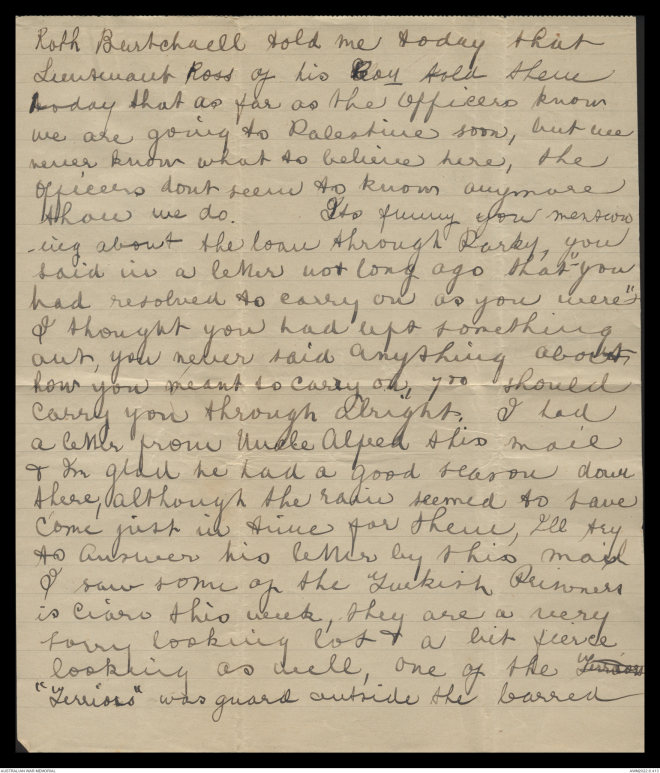 Roth Burtchaell told me today that
Lieutenant Ross of his Coy told them
today that as far as the Officers know
we are going to Palestine soon, but we
never know what to believe here, the
Officers dont seem to know anymore
than we do. Its funny you mention
-ing about the loan through Parky, you
said in a letter not long ago that "you
had resolved to carry on as you were"
I thought you had left something
out, you never said anything about
how you meant to carry on, 700 should
carry you through alright. I had
a letter from Uncle Alfred this mail
& Im glad he had a good season down
there, although the rain seemed to have
come just in time for them, I'll try
to answer his letter by this mail
I saw some of the Turkish Prisoners
is Ciaro this week, they are a very
sorry looking lot & a bit fierce
looking as well, one of the
"Terriors" was guard outside the barred
AUSTRALIAN WAR MEMORIAL